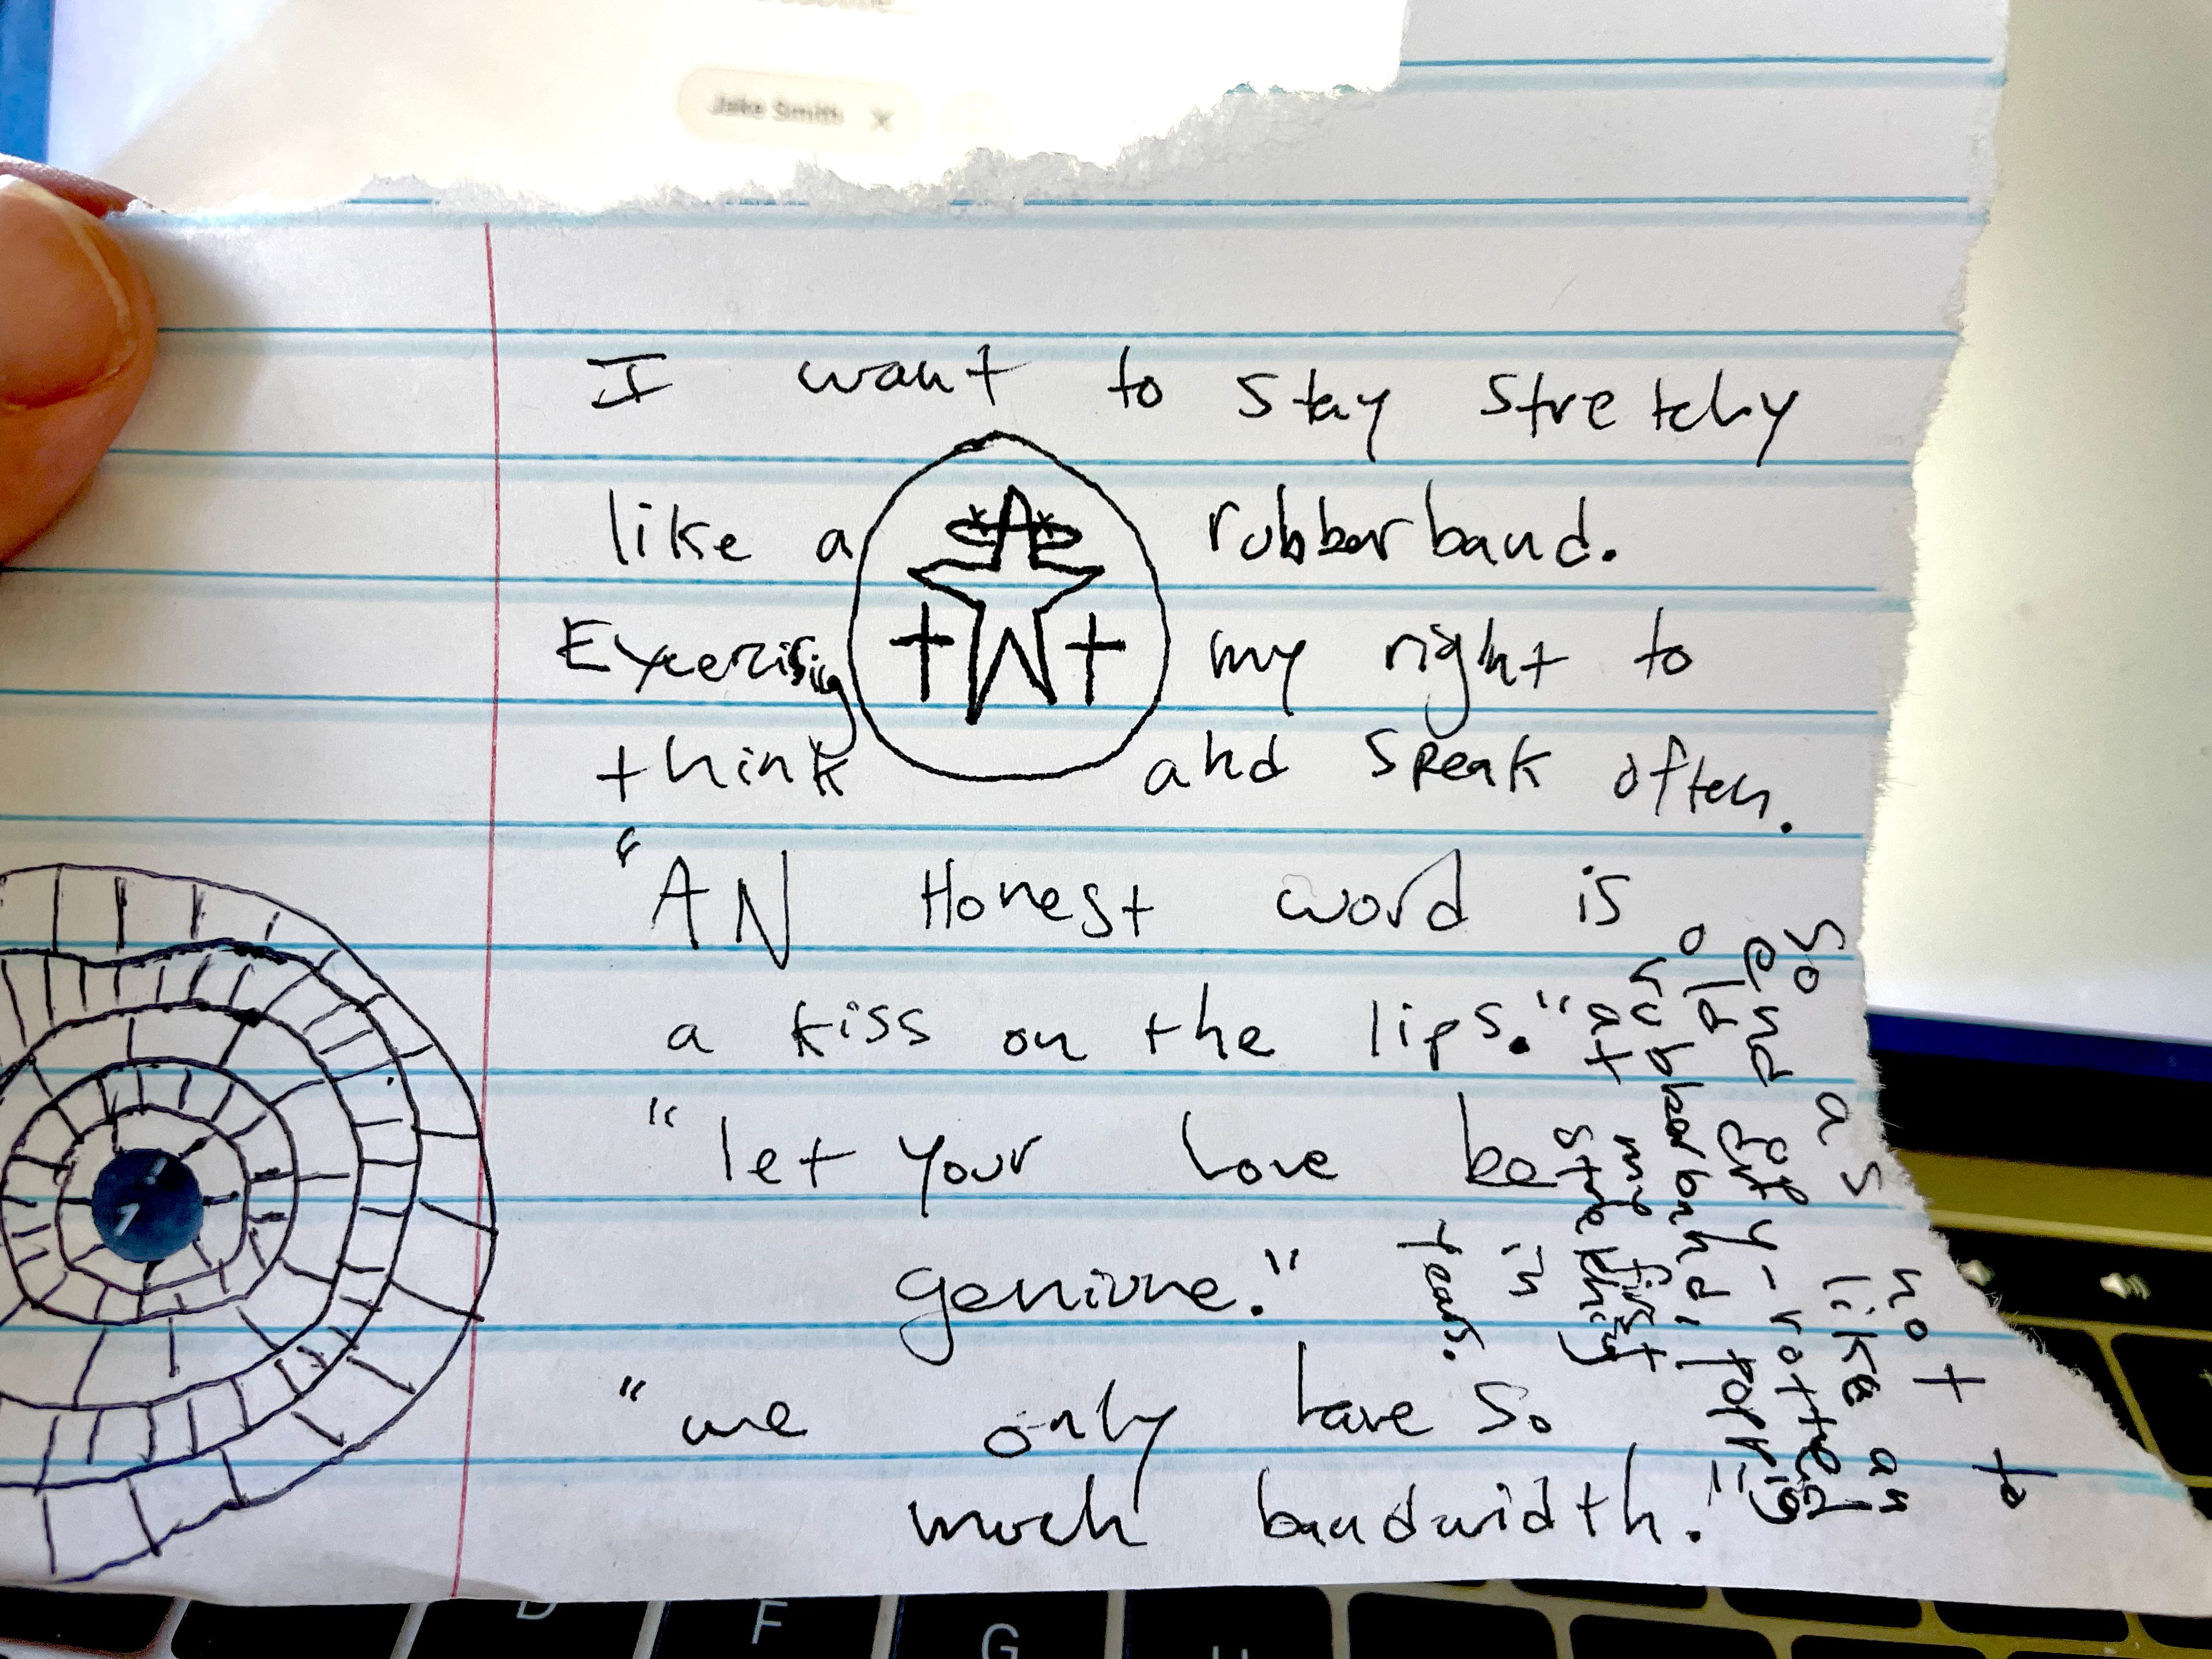 Jake Smith ×
I want to stay stretchy
like a rubberband.
Excerising my right to
think and speak often.
"AN Honest word is
a kiss on the lips."
"let your love be
genivne."
"we only have so
much bandwidth."
So as not to
end up like an
old dry-rotted
rubberband
at my first
stretching
in
years.
1
D F G